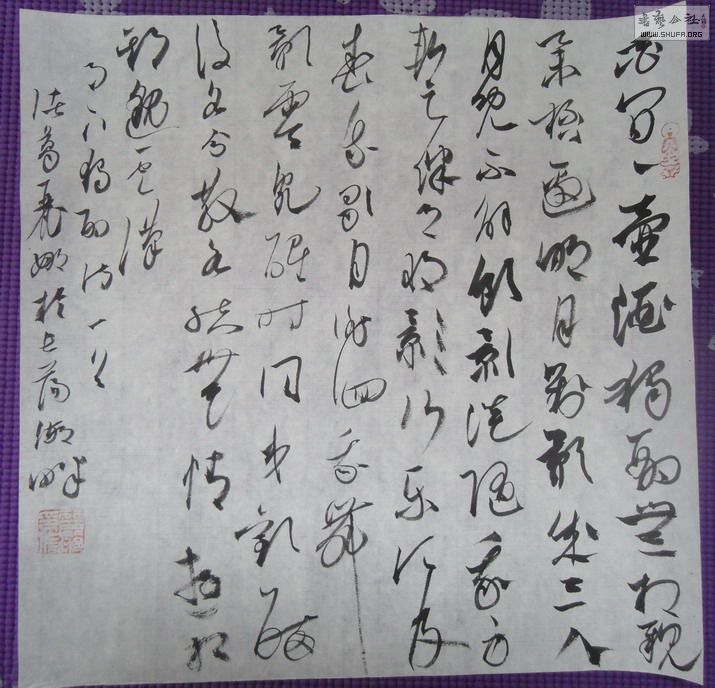 花間一壺酒獨酌無相親
舉杯邀明月對影成三人
月既不解飲影徒隨我身
暫伴月將影行樂須及
春我歌月徘徊我舞
影零亂醒時同交歡醉
後各分散永結無情遊相
期邈雲漢
月下獨酌詩一首
諸葛麗娜於長蕩湖畔
書藝公社
WWW.SHUFA.ORG